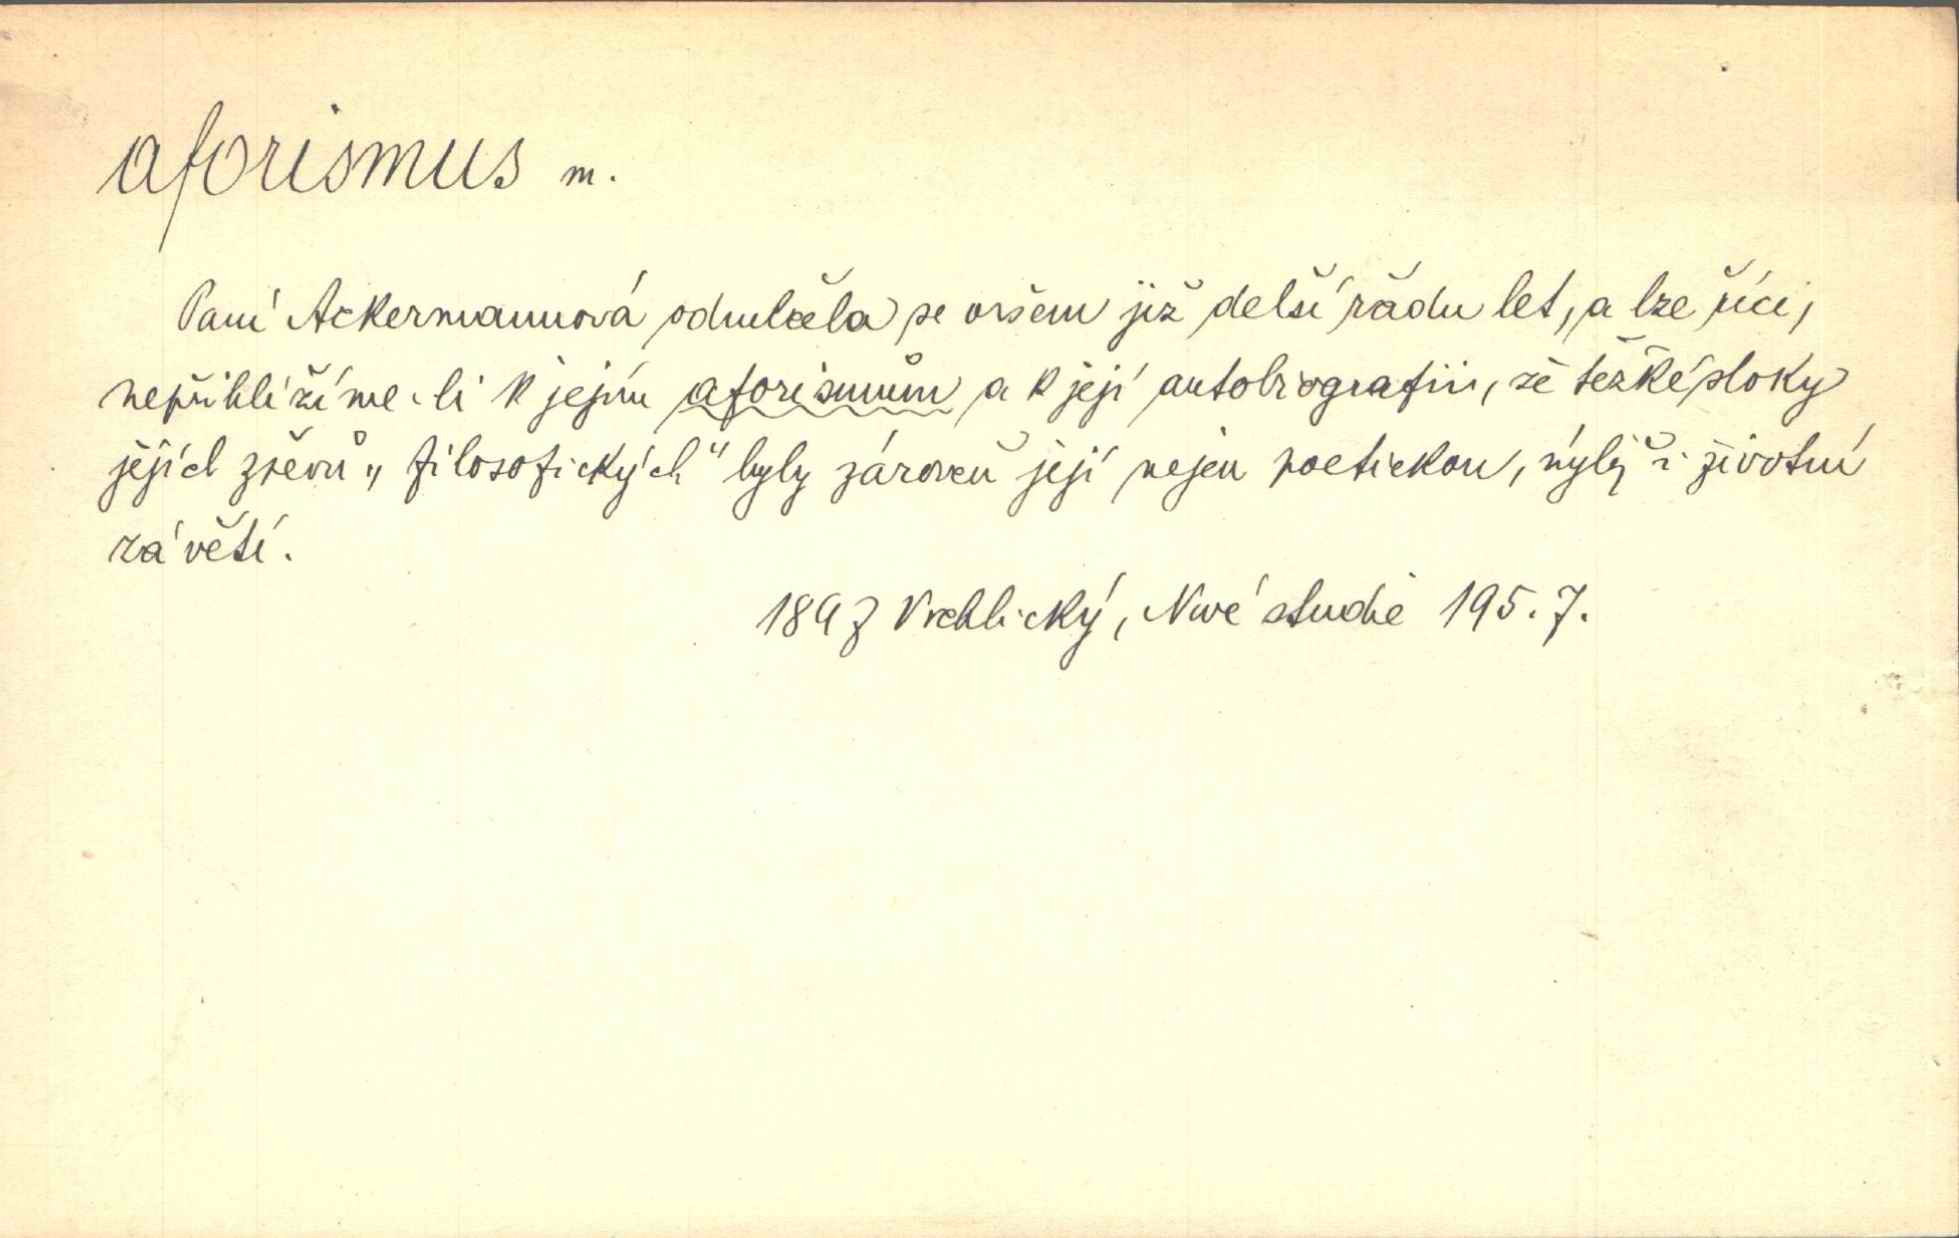 aforismus m.
Paní Ackermannová odmlčela se ovšem již delší řádu let, a lze říci,
nepřihlížíme-li k jejím aforismům a k její autobiografii, že těžké sloky
jejích zpěvů „filosofických“ byly zároveň její nejen poetickou, nýbrž i životní
závětí.
1897 Vrchlický, Nové studie 195.7.